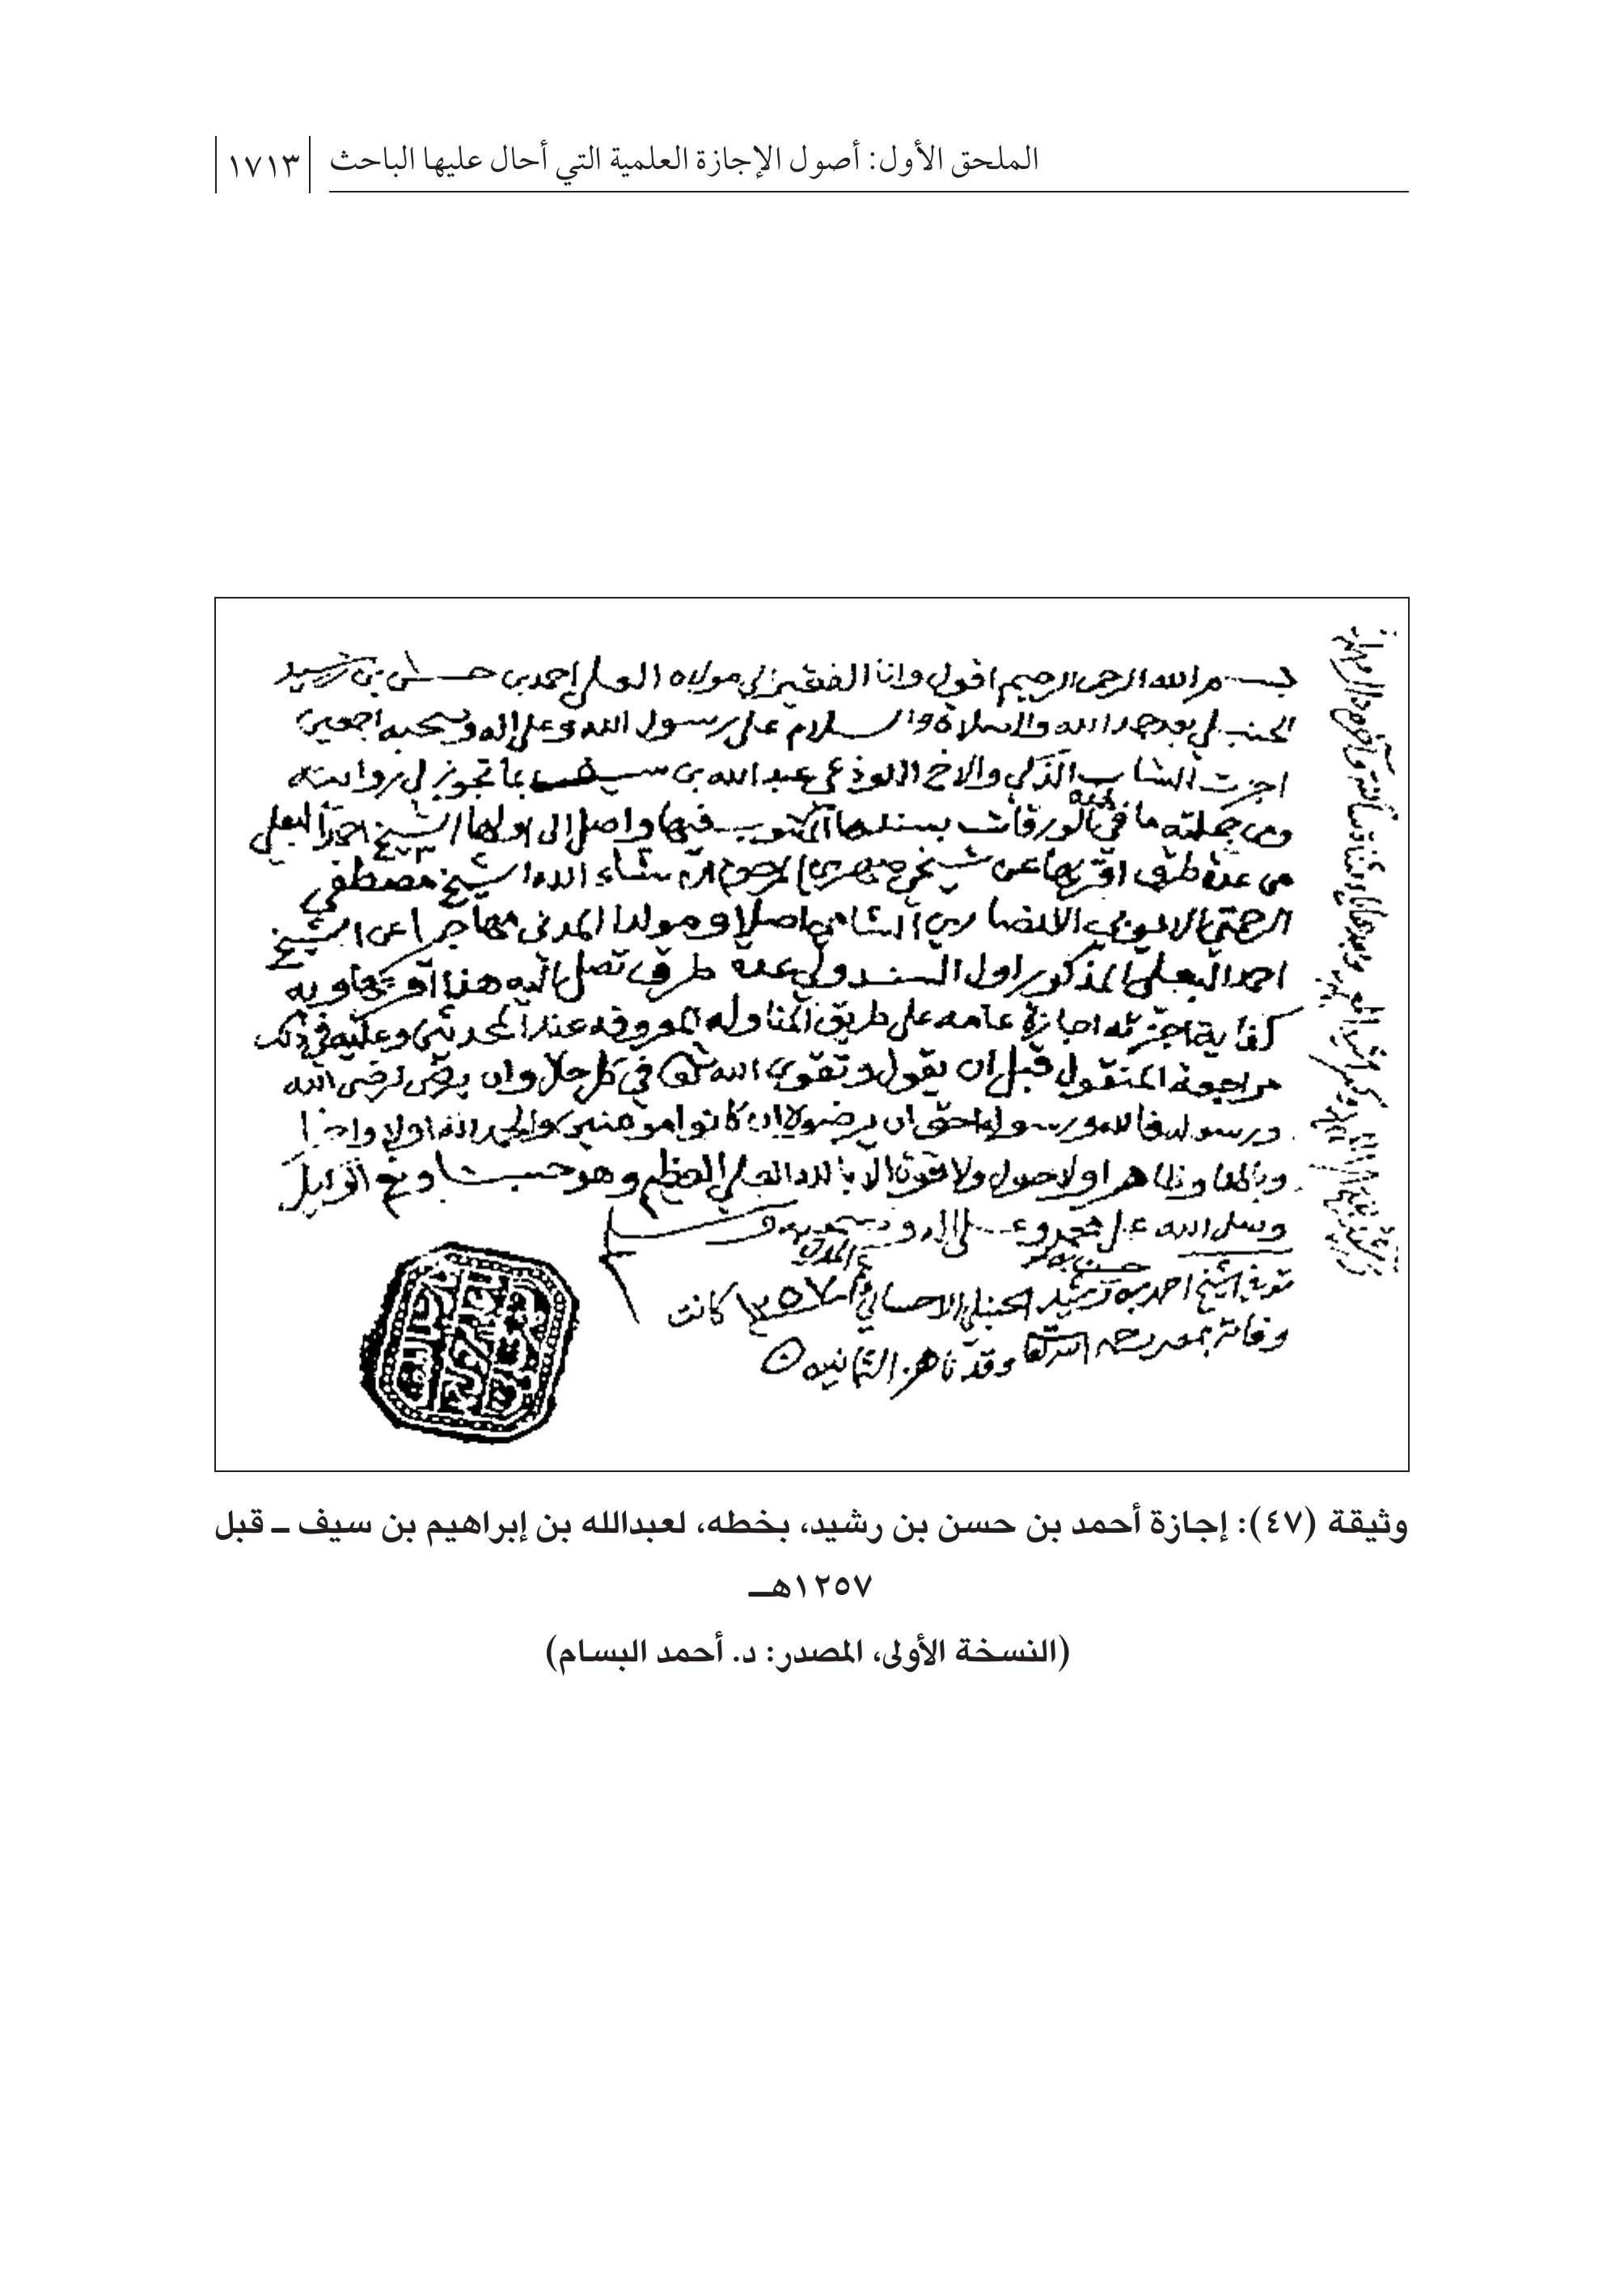 الملحق الأول: أصول الإجازة العلمية التي أحال عليها الباحث
١٧١٣
بسم الله الرحمن الرحيم اقول وانا الفقير الى مولاه العلي احمد بن حسن بن رشيد
الحنبلي بعد حمد الله والصلاة والسلام على رسول الله وعلى اله وصحبه اجمعين
اجزت الشاب الذكي والاخ اللوذعي عبد الله بن سيف بما تجوز لي روايته
ومن جملته ما في الورقات بسندها المكتوب فيها واصل الى اولها الشيخ احمد البعلي
من عدة طرق اقربها عن شيخي المرحوم ان شاء الله الشيخ مصطفى
الرحمتي الايوبي الانصاري الشامي اصلا ومولدا المدني مهاجرا عن الشيخ
احمد البعلي المذكور اول السند ولي عدة طرق تصل اليه هذا اقربها وبه
كفاية اجزته اجازة عامه على طريق المناوله المعروفه عند المحدثين وعليه في ذلك
مراجعة المنقول قبل ان يقول وتقوى الله في كل حال وان
ورسوله فالله ورسوله احق ان يرضوه ان كانوا مومنين والحمد لله اولا واخرا
وباطنا وظاهرا ولا حول ولا قوة الا بالله العلي العظيم وهو حسبنا ونعم الوكيل
وصلى الله على محمد وعلى اله وصحبه وسلم
توفي الشيخ احمد بن حسن بن رشيد الحنبلي الاحسائي ١٢٥٧ كانت
وفاته رحمه الله تعالى وقد ناهز الثمانين
وثيقة (٤٧): إجازة أحمد بن حسن بن رشيد، بخطه، لعبدالله بن إبراهيم بن سيف ـ قبل
١٢٥٧هـ
(النسخة الأولى، المصدر: د. أحمد البسام)